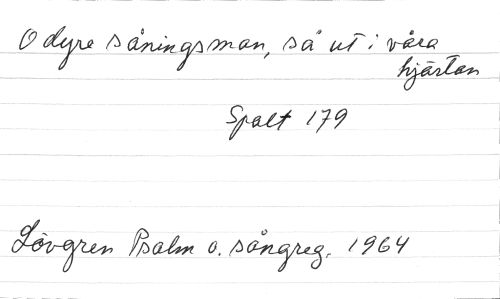 O dyre såningsman, så ut i våra
hjärtan
Spalt 179
Lövgren Psalm o. sångreg. 1964